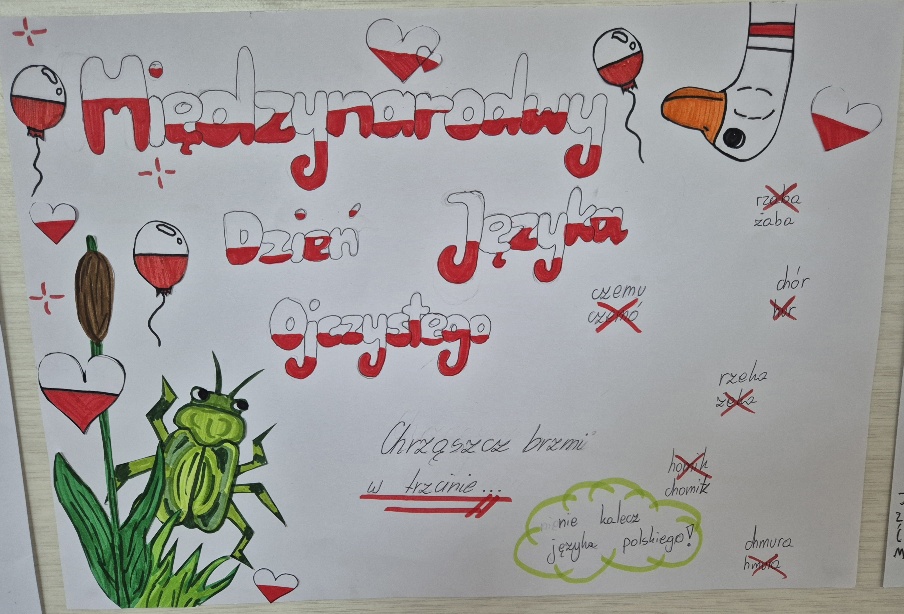 Międzynarodowy
Dzień Języka
Ojczystego
rzaba
żaba
czemu
czymó
chór
hór
rzeka
żeka
Chrząszcz brzmi
w trzcinie...
homik
chomik
nie kalecz
języka polskiego!
chmura
hmura